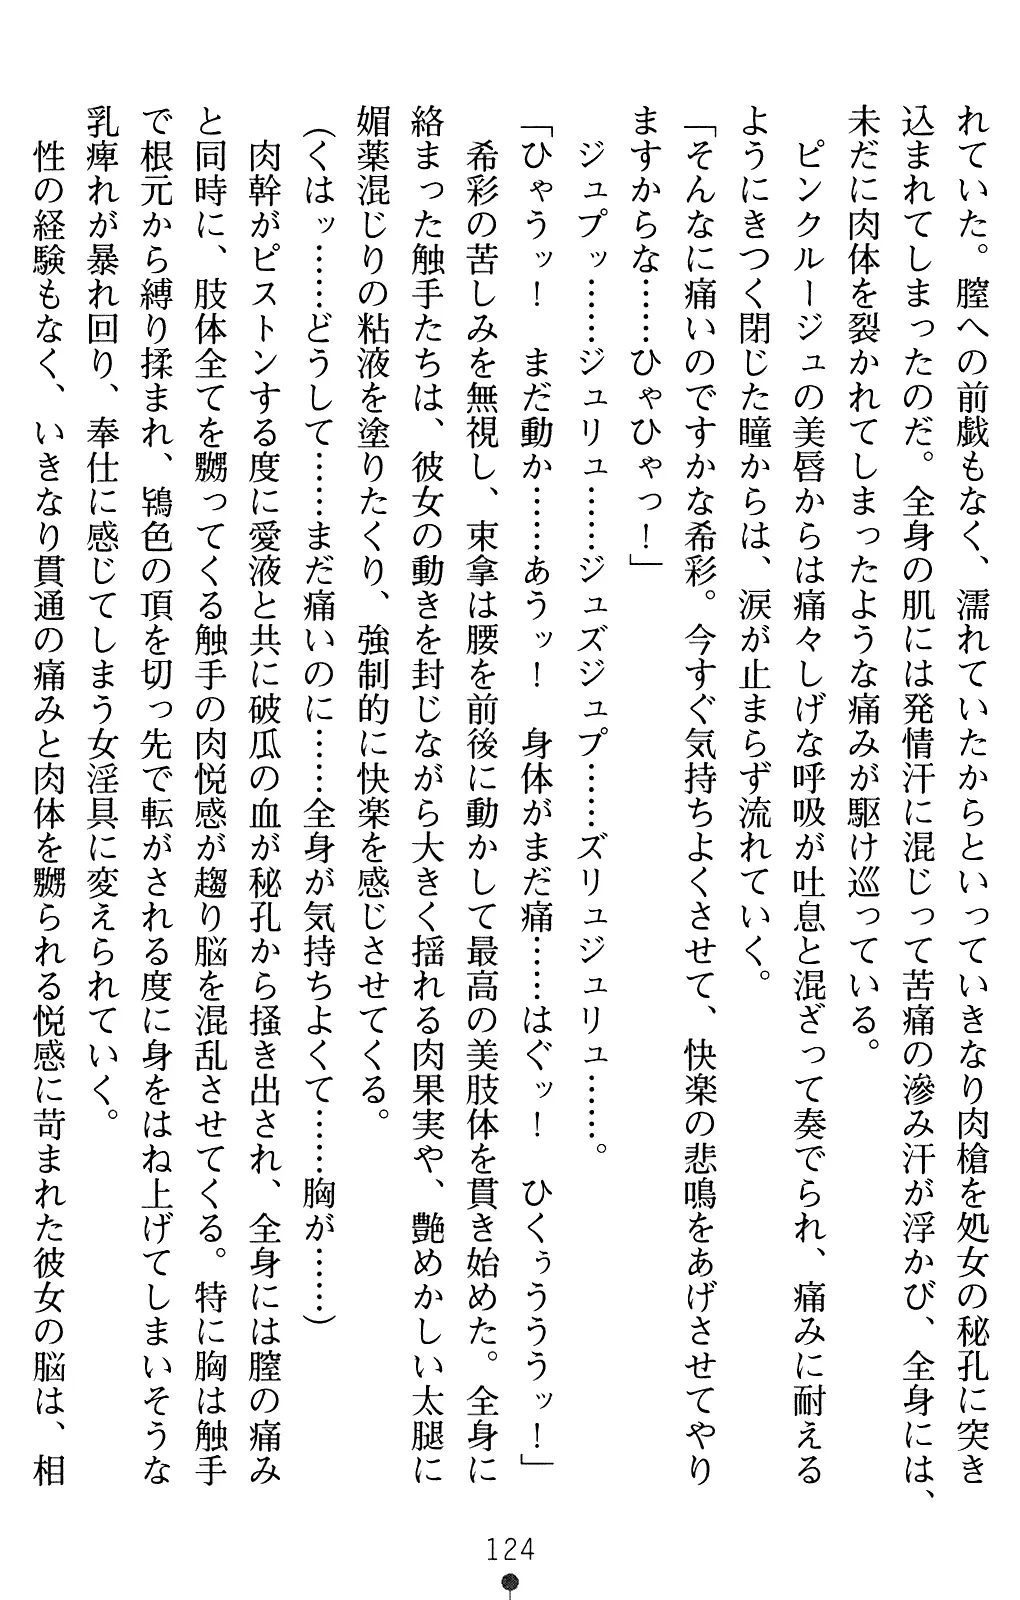 れていた。膣への前戯もなく、濡れていたからといっていきなり肉槍を処女の秘孔に突き
込まれてしまったのだ。全身の肌には発情汗に混じって苦痛の滲み汗が浮かび、全身には、
未だに肉体を裂かれてしまったような痛みが駆け巡っている。
ピンクルージュの美唇からは痛々しげな呼吸が吐息と混ざって奏でられ、痛みに耐える
ようにきつく閉じた瞳からは、涙が止まらず流れていく。
「そんなに痛いのですかな希彩。今すぐ気持ちよくさせて、快楽の悲鳴をあげさせてやり
ますからな……ひゃひゃっ！」
ジュプッ……ジュリュ……ジュズジュプ……ズリュジュリュ……。
「ひゃうッ！　まだ動か……あうッ！　身体がまだ痛……はぐッ！　ひくぅううッ！」
希彩の苦しみを無視し、束拿は腰を前後に動かして最高の美肢体を貫き始めた。全身に
絡まった触手たちは、彼女の動きを封じながら大きく揺れる肉果実や、艶めかしい太腿に
媚薬混じりの粘液を塗りたくり、強制的に快楽を感じさせてくる。
（くはッ……どうして……まだ痛いのに……全身が気持ちよくて……胸が……）
肉幹がピストンする度に愛液と共に破瓜の血が秘孔から掻き出され、全身には膣の痛み
と同時に、肢体全てを嬲ってくる触手の肉悦感が趨り脳を混乱させてくる。特に胸は触手
で根元から縛り揉まれ、鴇色の頂を切っ先で転がされる度に身をはね上げてしまいそうな
乳痺れが暴れ回り、奉仕に感じてしまう女淫具に変えられていく。
性の経験もなく、いきなり貫通の痛みと肉体を嬲られる悦感に苛まれた彼女の脳は、相
124